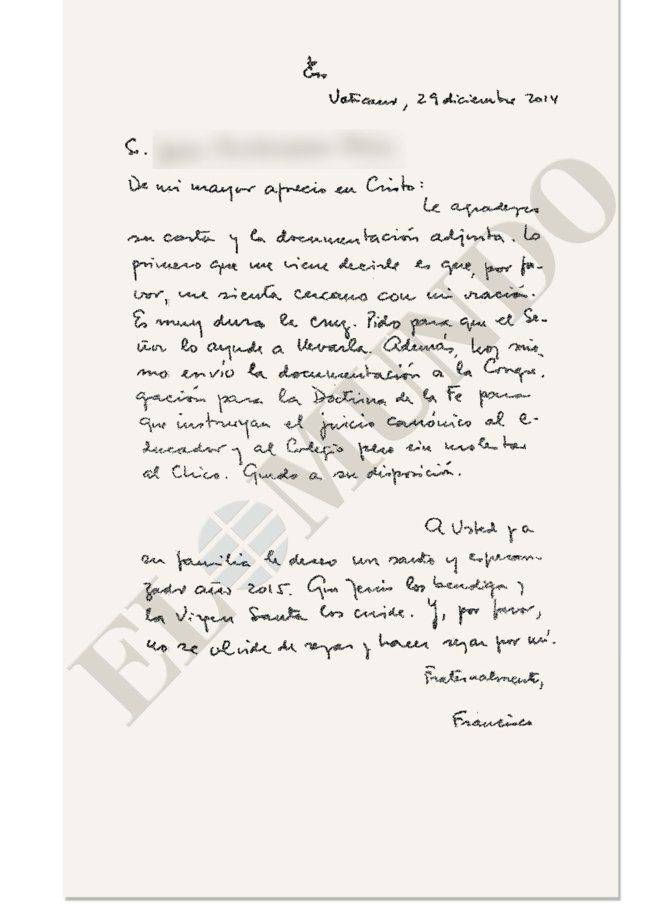 Vaticano, 29 diciembre 2014
S.
De mi mayor aprecio en Cristo:
Le agradezco
su carta y la documentación adjunta. Lo
primero que me viene decirle es que, por fa-
vor, me sienta cercano con mi oración.
Es muy dura la cruz. Pido para que el Se-
ñor lo ayude a llevarla. Además, hoy mis-
mo envío la documentación a la Congre-
gación para la Doctrina de la Fe para
que instruyan el juicio canónico al e-
ducador y al Colegio pero sin molestar
al Chico. Quedo a su disposición.
A Usted y a
su familia le deseo un santo y esperan-
zador año 2015. Que Jesús los bendiga y
la Virgen Santa los cuide. Y, por favor,
no se olvide de rezar y hacer rezar por mí.
Fraternalmente,
Francisco
EL MUNDO